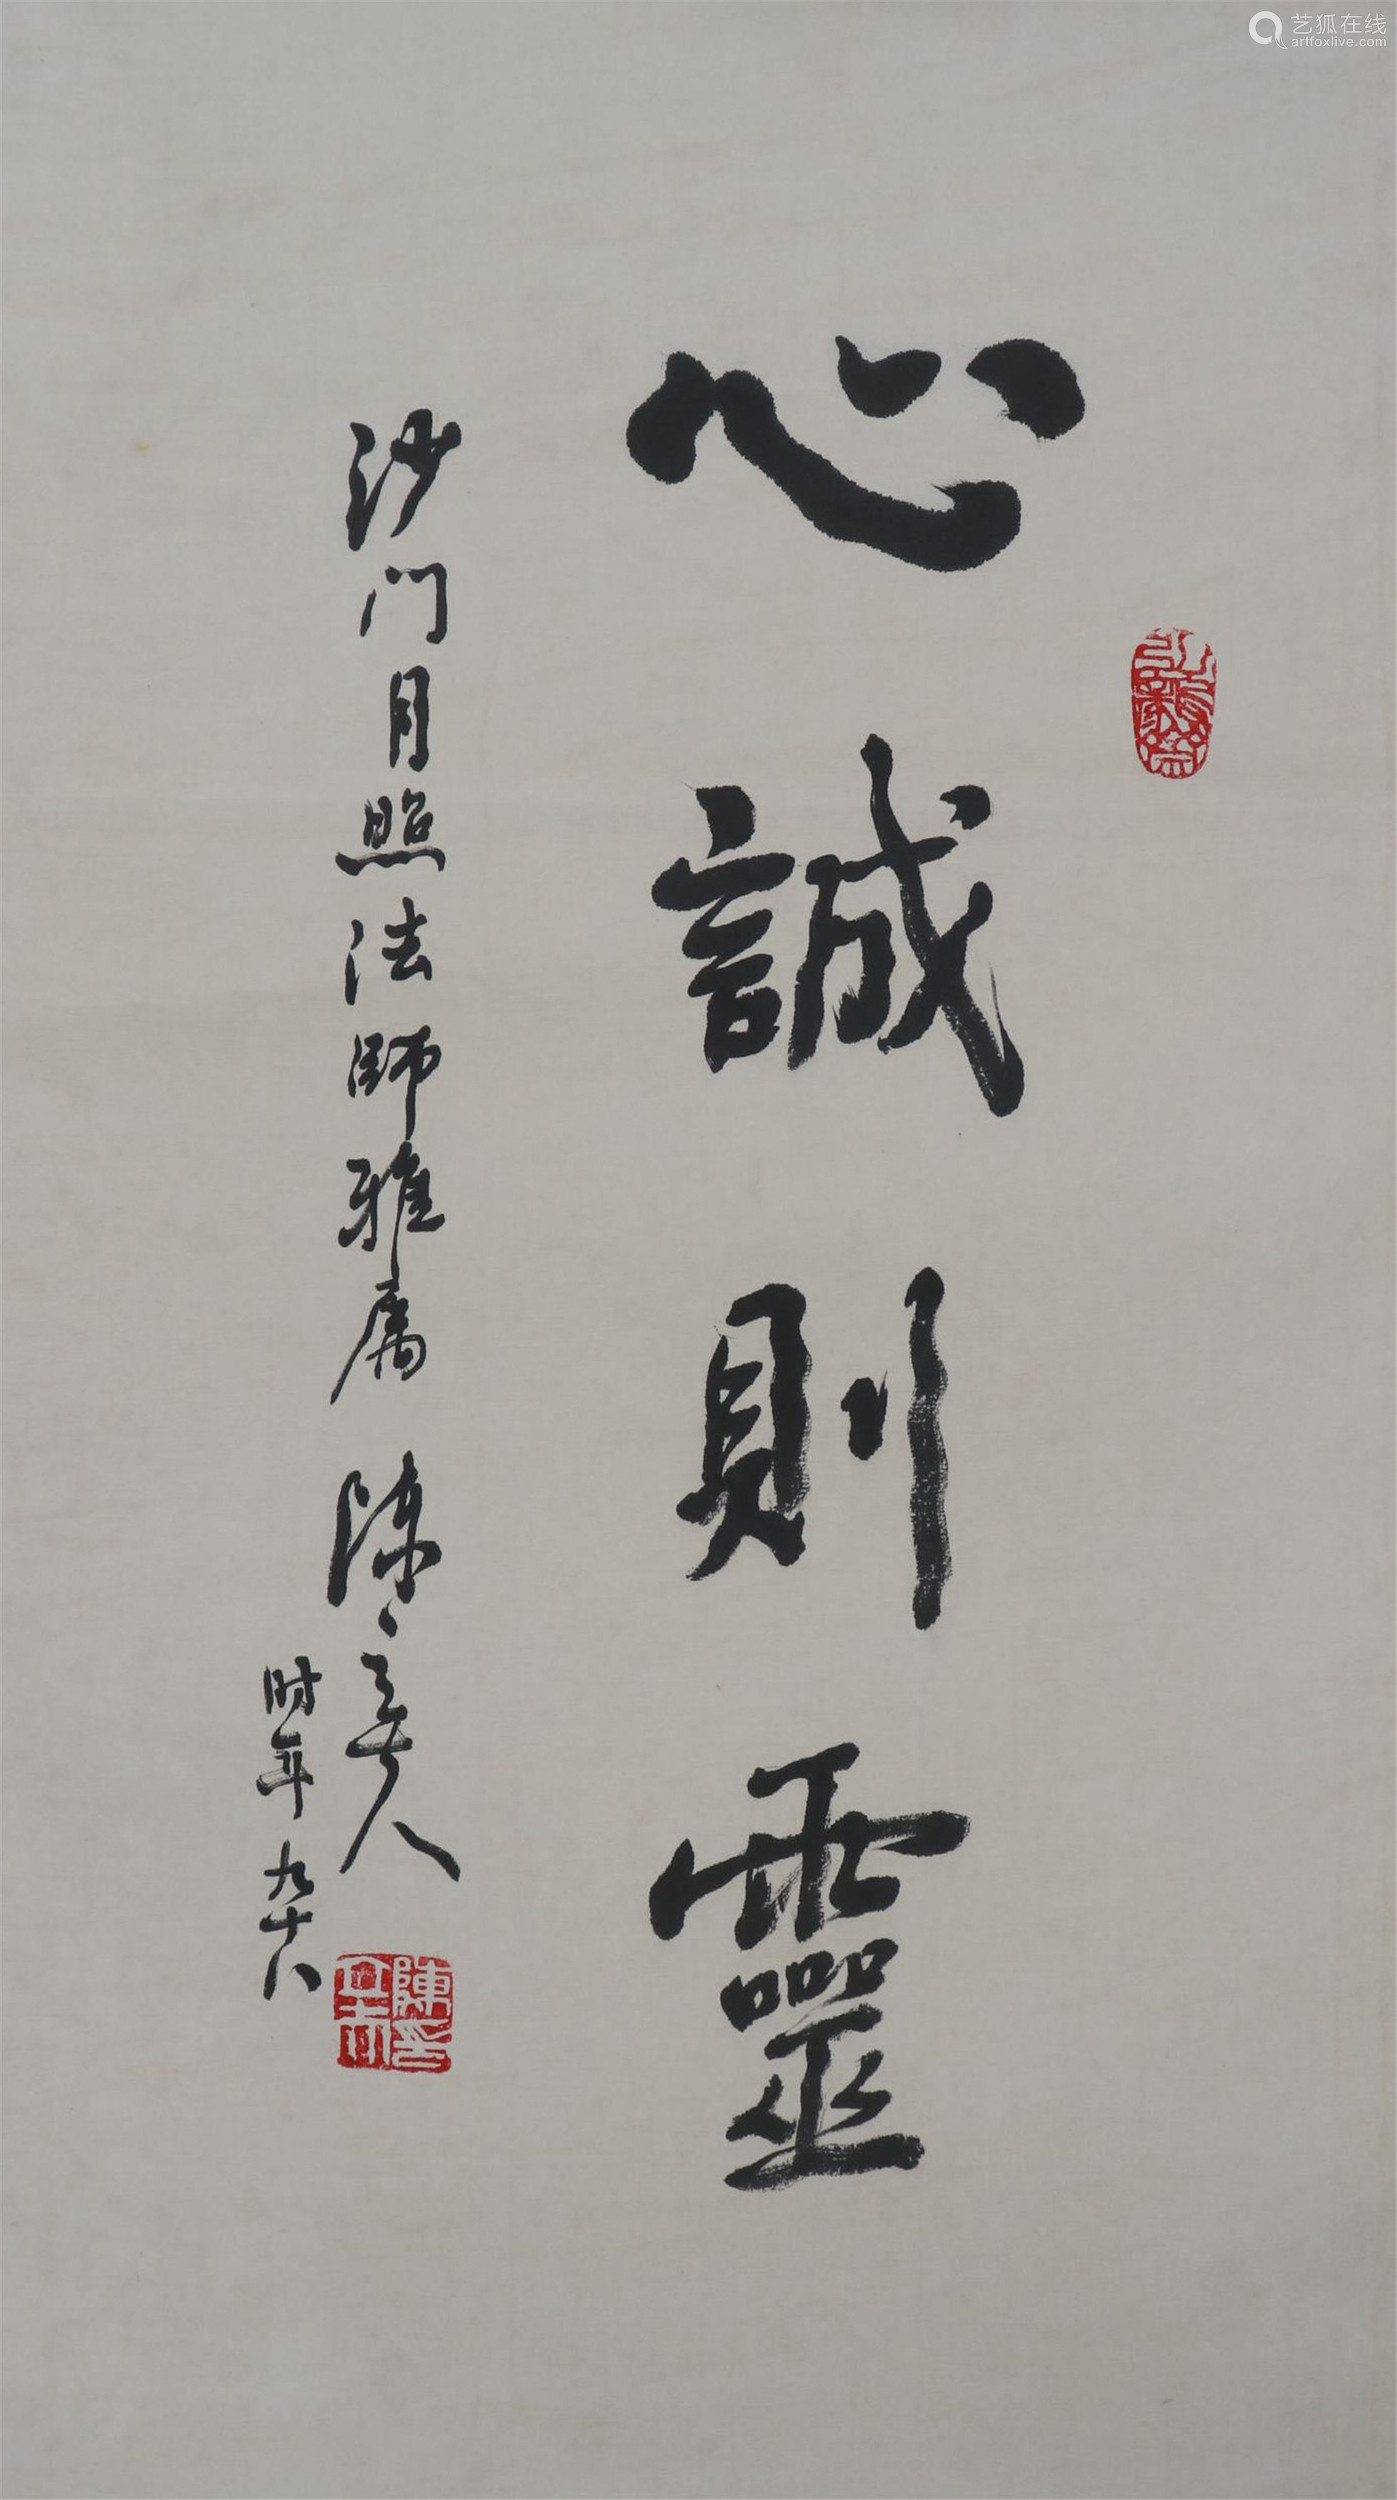 艺狐在线
artfoxlive.com
心誠則靈
沙门月照法師雅属 陳立夫
时年九十八